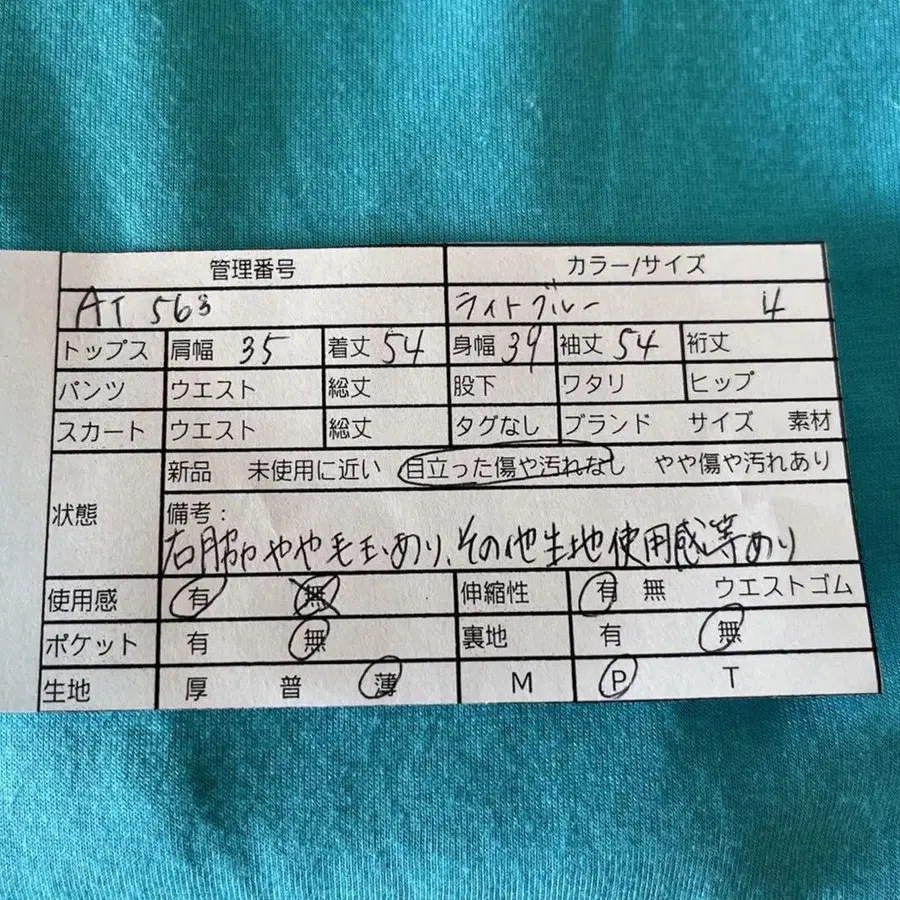 管理番号 カラー/サイズ
AT 563 ライトブルー 4
トップス 肩幅 35 着丈 54 身幅 39 袖丈 54 裄丈
パンツ ウエスト 総丈 股下 ワタリ ヒップ
スカート ウエスト 総丈 タグなし ブランド サイズ 素材
状態 新品 未使用に近い 目立った傷や汚れなし やや傷や汚れあり
備考:
右脇やや毛玉あり、その他生地使用感等あり
使用感 有 無 伸縮性 有 無 ウエストゴム
ポケット 有 無 裏地 有 無
生地 厚 普 薄 M P T